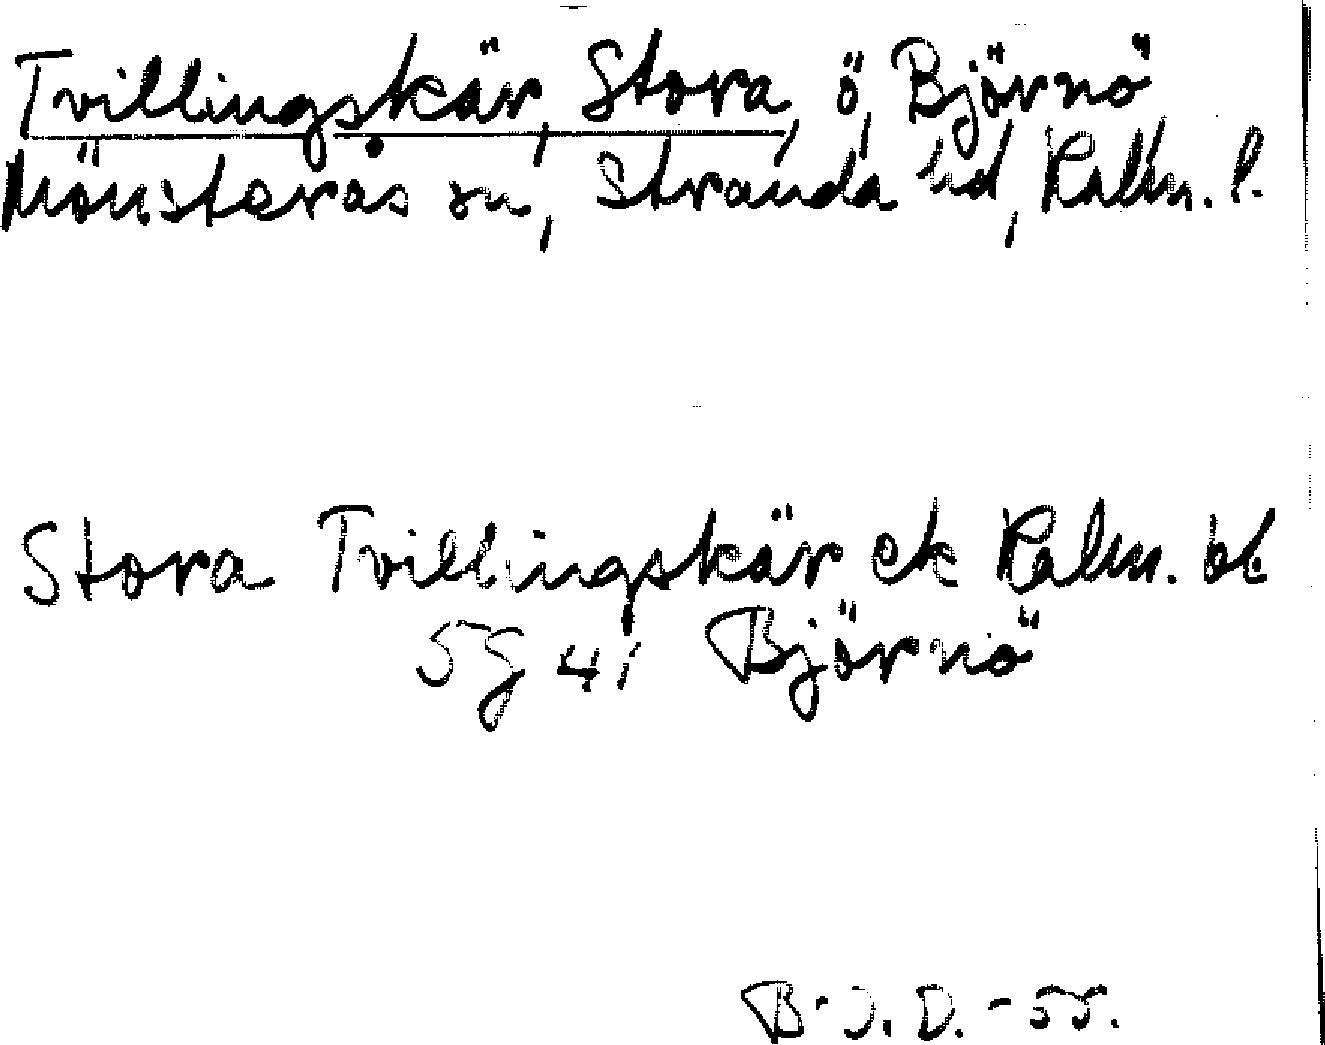 Tvillingskär, Stora, ö, Björnö
Mönsterås sn, Stranda hd, Kalm. l.
Stora Tvillingskär ek Kalm. bl
5g 4i Björnö
B-J. D. -55.